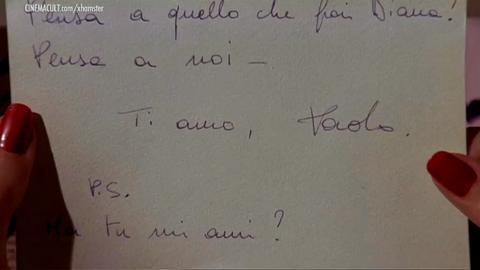 CINEMACULT.com/xhamster
Pensa a quello che fai Diana!
Pensa a noi —
Ti amo, Paolo.
P.S.
Ma tu mi ami?